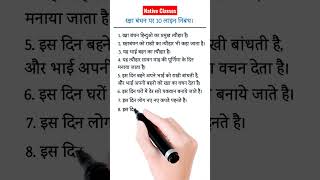 Native Classes
रक्षा बंधन पर 10 लाइन निबंध।
1. रक्षा बंधन हिन्दुओ का प्रमुख त्यौहार है।
2. रक्षाबंधन को राखी का त्यौहार भी कहा जाता है।
3. यह भाई बहन का त्यौहार है।
4. यह त्यौहार सावन माह की पूर्णिमा के दिन
मनाया जाता है।
5. इस दिन बहने अपने भाई को राखी बांधती है,
और भाई अपनी बहनो को रक्षा का वचन देता है।
6. इस दिन घरों में ढेर सारे पकवान बनाये जाते है।
7. इस दिन लोग नए नए कपडे पहनते है।
8. इस दि
5. इस दिन बहने
और भाई अपनी
6. इस दिन
7. इस दिन लोग
8. इस दिन
राखी बांधती है,
वचन देता है।
बनाये जाते है।
हनते है।